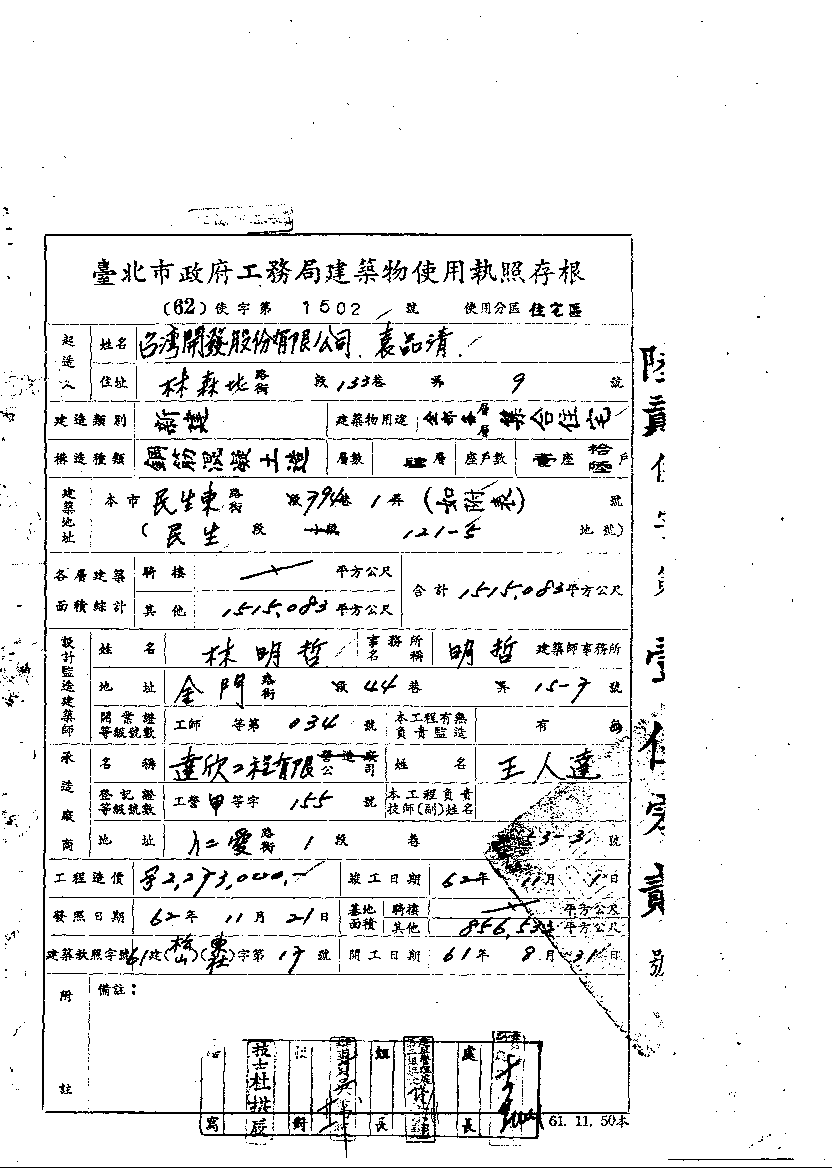 臺北市政府工務局建築物使用執照存根
(62)使字第 1502 號 使用分區 住宅區
起造人 姓名 台湾開發股份有限公司 袁品清
住址 林森北 路街 段 133巷 弄 9 號
建造類別 新建 建築物用途 全部各層層 集合住宅
構造種類 鋼筋混凝土造 層數 肆層 座戶數 壹座 拾陸戶
建築地址 本市 民生東 路街 段 394巷 1弄 (如附表) 號
(民生 段 小段 121-5 地號)
各層建築面積綜計 騎樓 平方公尺 合計 1515.083平方公尺
其他 1515.083 平方公尺
設計監造建築師 姓名 林明哲 事務所名稱 明哲 建築師事務所
地址 金門 路街 段 44巷 弄 15-7 號
開業證等級號數 工師 等第 034 號 本工程有無負責監造 有 無
承造廠商 名稱 達欣工程有限 營造廠公司 姓名 王人達
登記證等級號數 工營甲等字 155 號 本工程負責技師(副)姓名
地址 仁愛 路街 1段 巷 53-3 號
工程造價 2,273,000.- 竣工日期 62年 11月 1日
發照日期 62年 11月 21日 基地面積 騎樓 平方公尺
其他 856.533 平方公尺
建築執照字號 61建(松山)(東社)字第 17 號 開工日期 61年 8月 31日
附註 備註：
寫 技士杜 對 組長 處長
61. 11. 50本
陸貳使字第壹伍零貳號